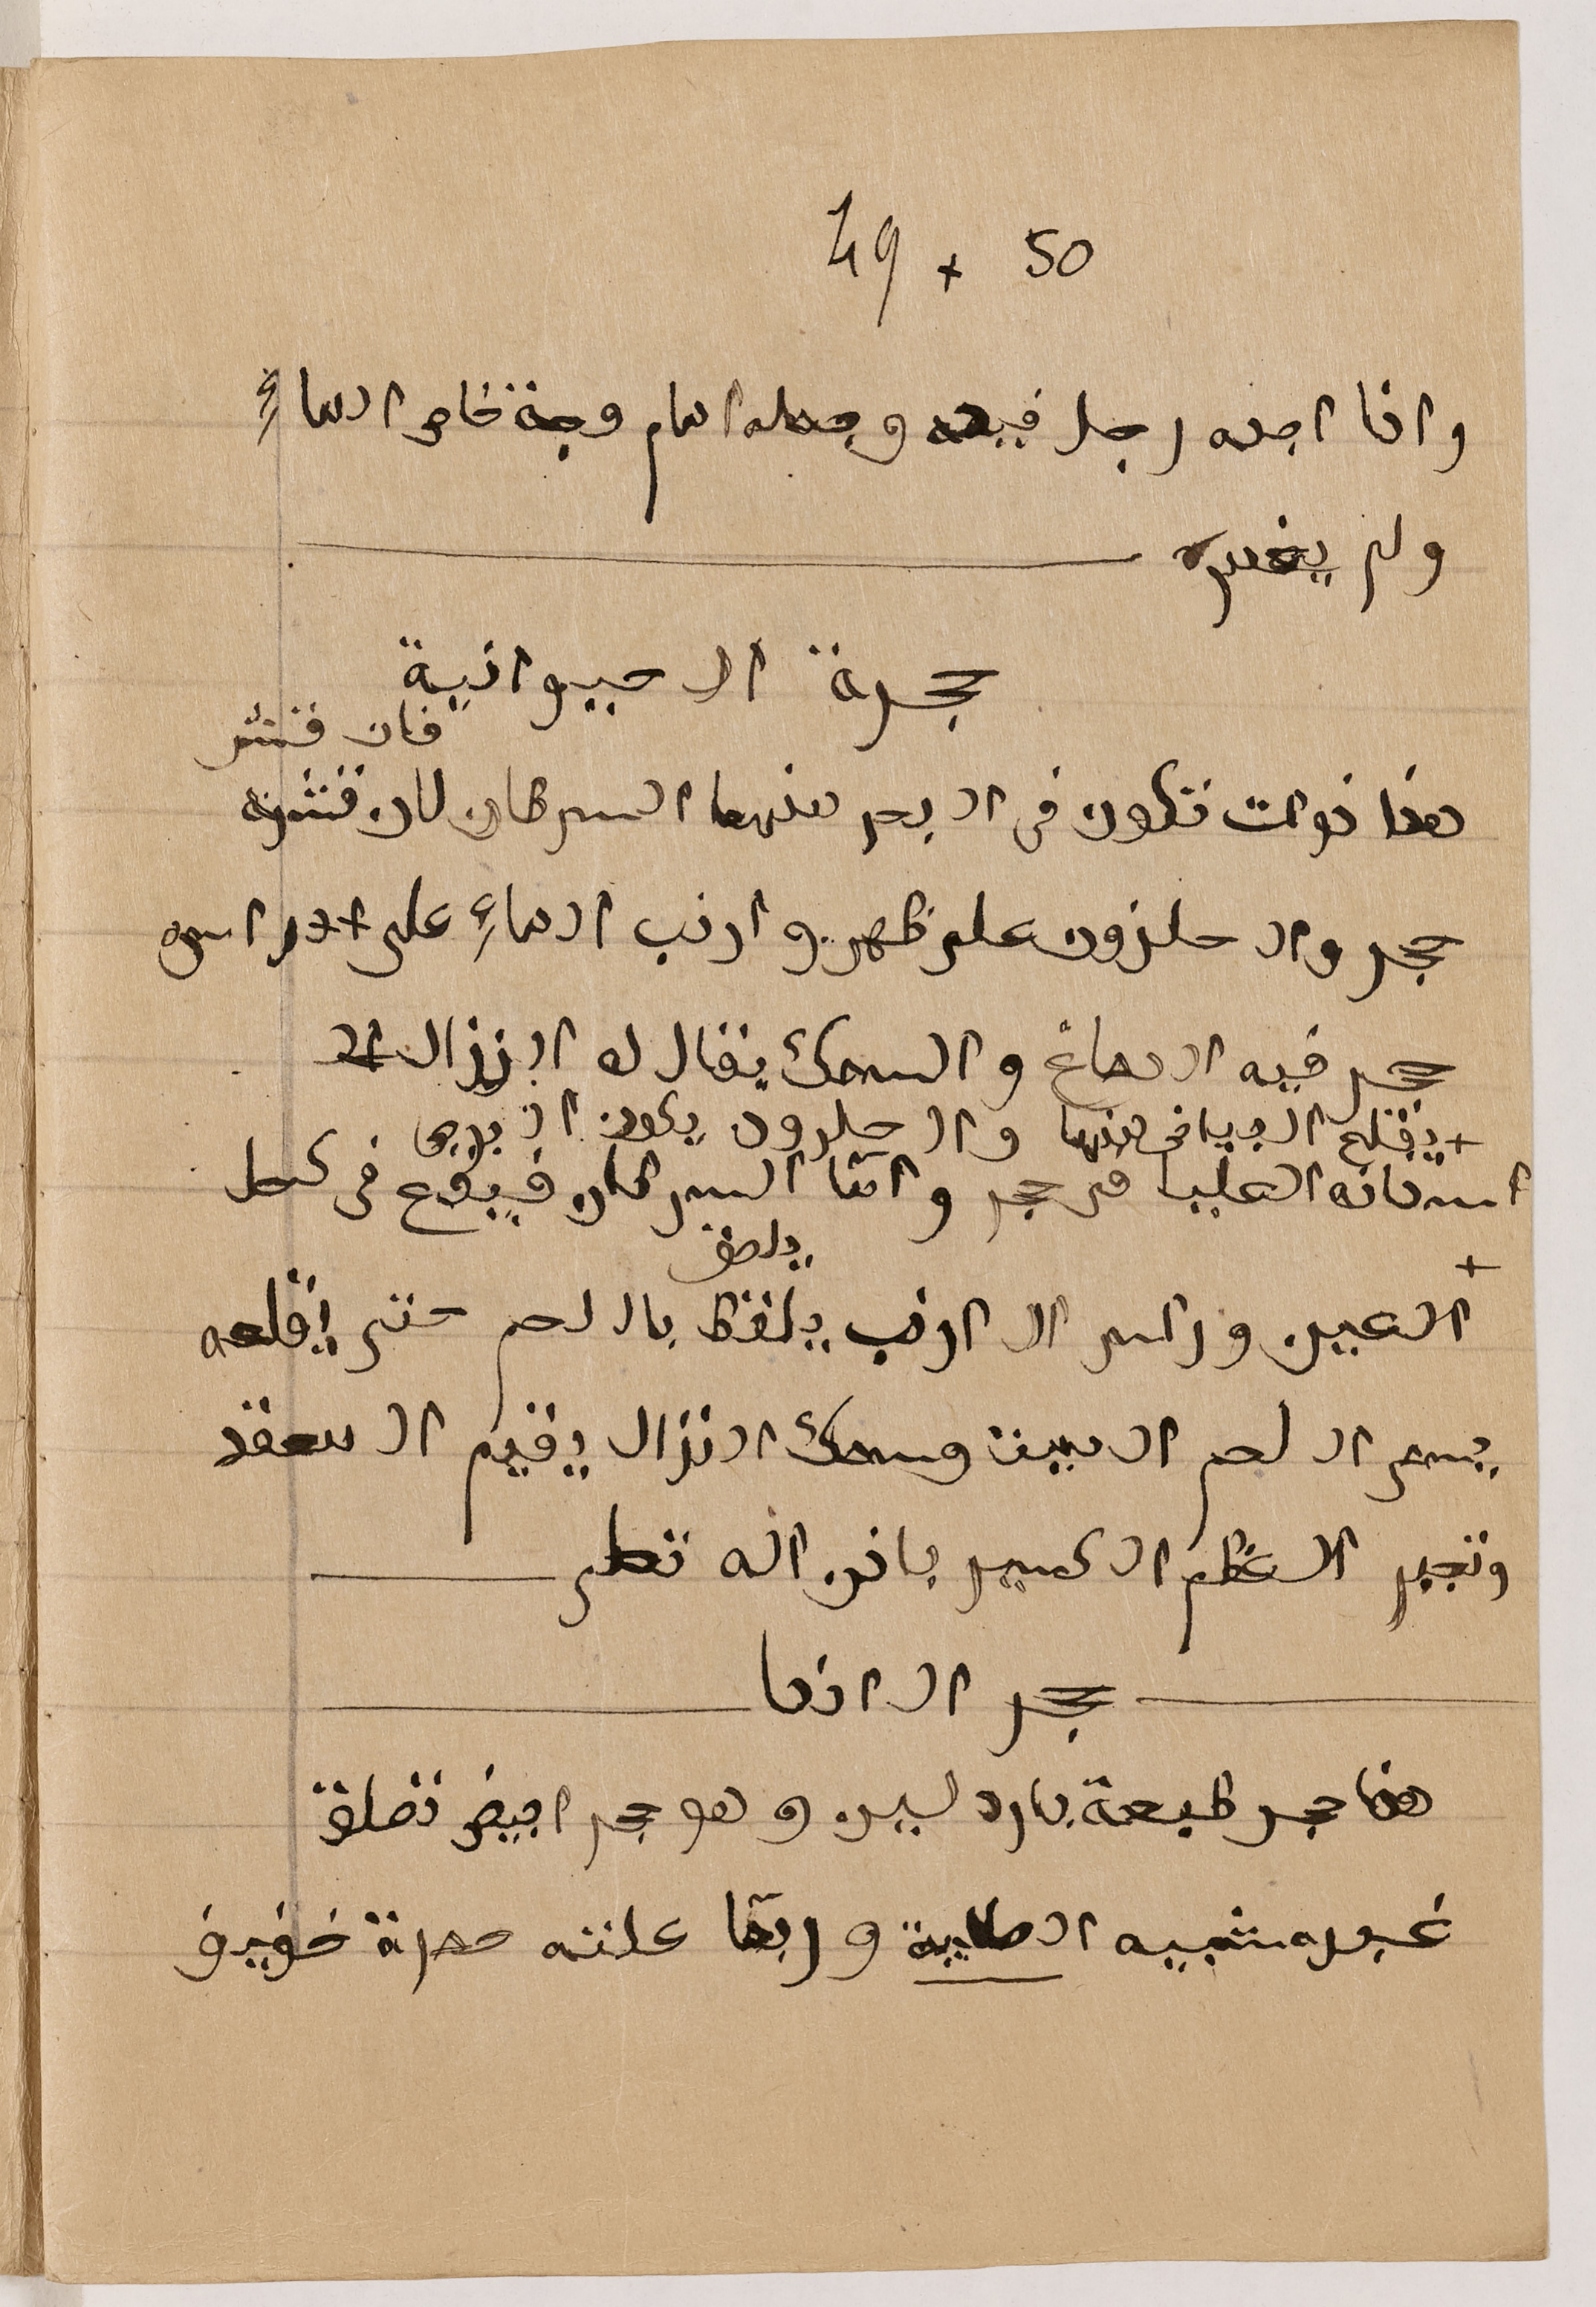 49 + 50
واذا اجده رجل فيده وجعله امام وجة خاض الماءِ
ولم يضره
حجرة الحيوانية
فان قشر
هذا ذوات تكون فى البحر منها السرطان لان قشره
حجر والحلزون على ظهر وارنب الماءِ على راس
حجر فيه الدماغ والسمك يقال له النزال
+ يقلع البياض منها والحلزون يكون
اسنانه العليا من حجر واما السرطان فيوقع فى كحل
يلصق
+
العين وراس الارنب باللحم حتى اقلعه
يسمى اللحم الميت وسمك النزال يقيم المعقد
وتجبر العظم الكسير باذن اله تعلى
حجر الاذما
هذا حجر طبعة بارد لين وهو حجر ابيض
غبره شبيه الطيبة وربما علته حمرة خفيف